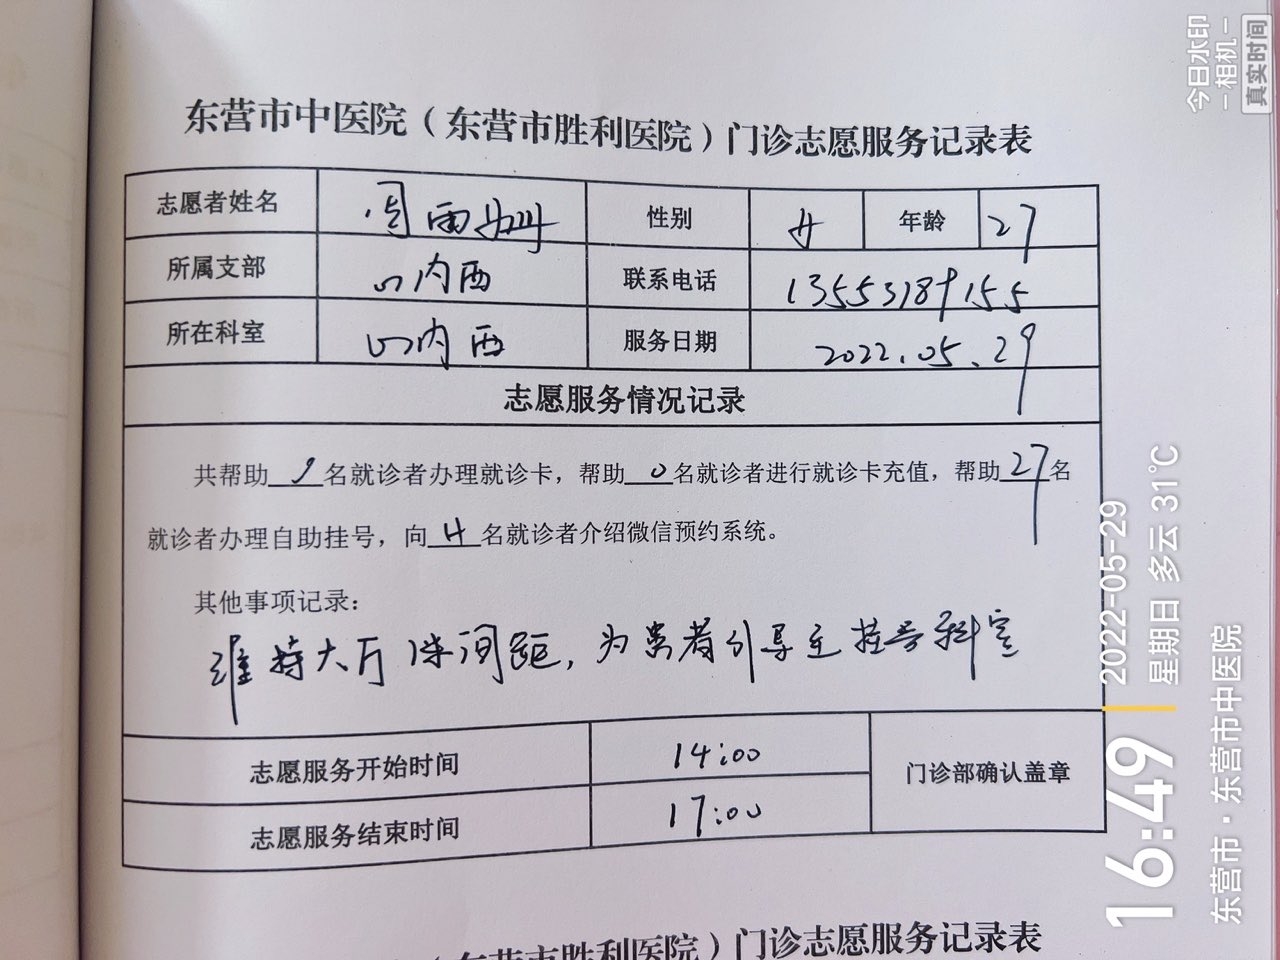 东营市中医院（东营市胜利医院）门诊志愿服务记录表
志愿者姓名 周雨姗 性别 女 年龄 27
所属支部 心内西 联系电话 13553189155
所在科室 心内西 服务日期 2022.05.29
志愿服务情况记录
共帮助 9 名就诊者办理就诊卡，帮助 0 名就诊者进行就诊卡充值，帮助 27 名
就诊者办理自助挂号，向 4 名就诊者介绍微信预约系统。
其他事项记录：
维持大厅 间距，为患者引导至挂号科室
志愿服务开始时间 14:00
门诊部确认盖章
志愿服务结束时间 17:00
（东营市胜利医院）门诊志愿服务记录表
今日水印
-相机-
真实时间
16:49
2022-05-29
星期日 多云 31℃
东营市·东营市中医院